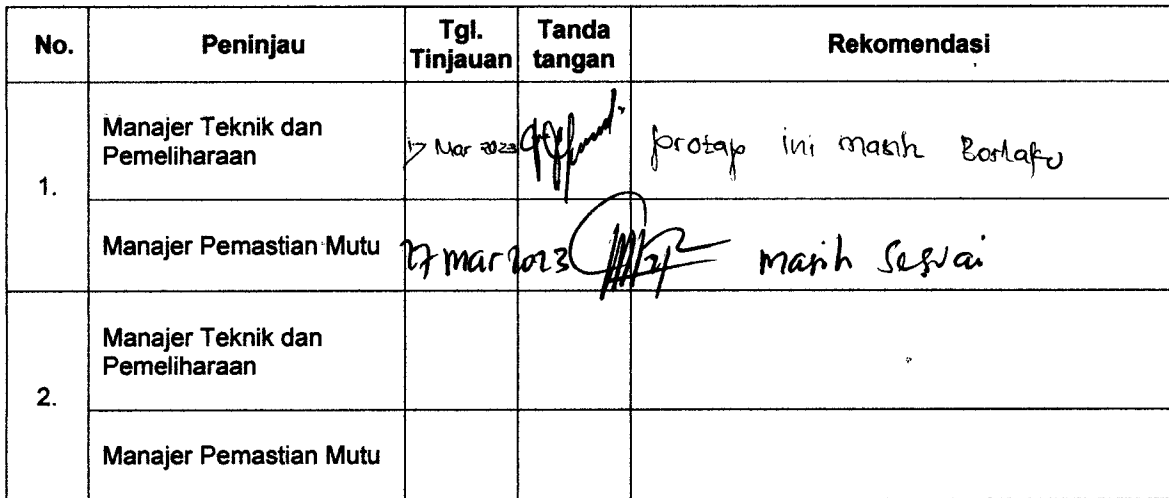 No. Peninjau Tgl. Tinjauan Tanda tangan Rekomendasi
1.
Manajer Teknik dan Pemeliharaan Mar 2023 protap ini masih Berlaku
Manajer Pemastian Mutu 27 mar 2023 masih Sesuai
2.
Manajer Teknik dan Pemeliharaan
Manajer Pemastian Mutu